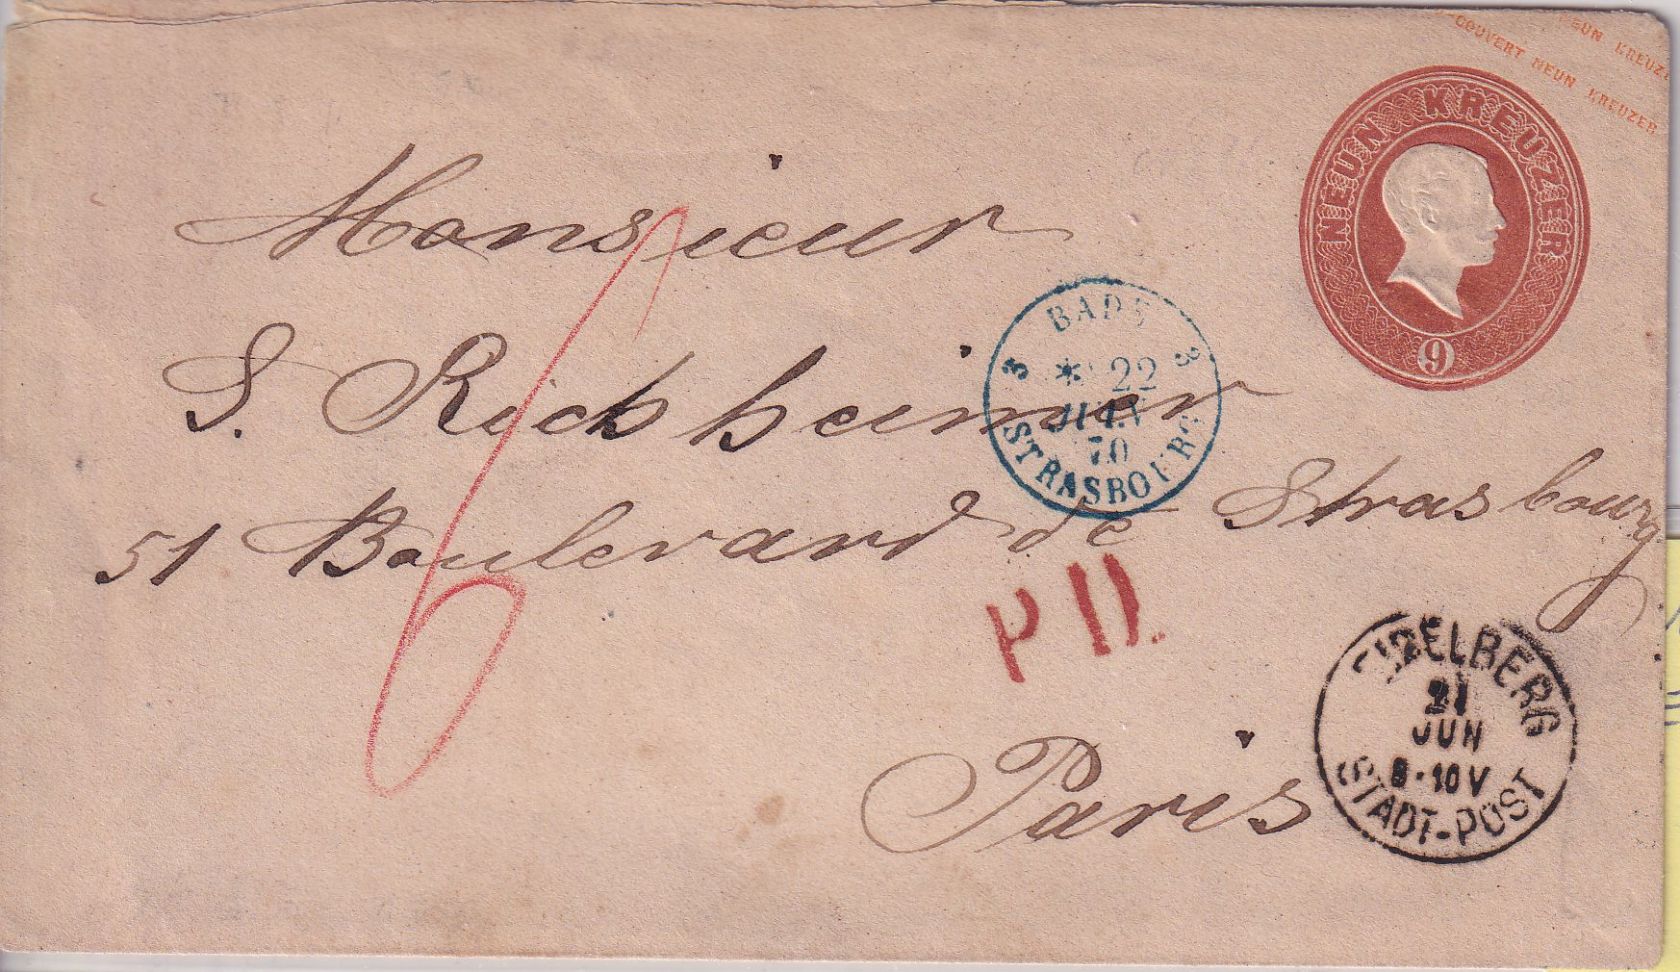 NEUN KREUZER
COUVERT NEUN KREUZER
NEUN KREUZER
9
Monsieur
S. Richheimer
51 Boulevard de Strasbourg
Paris
6
BADE
3 3
22
JUIN
70
STRASBOURG
P.D.
HEIDELBERG
21
JUN
8-10 V
STADT-POST